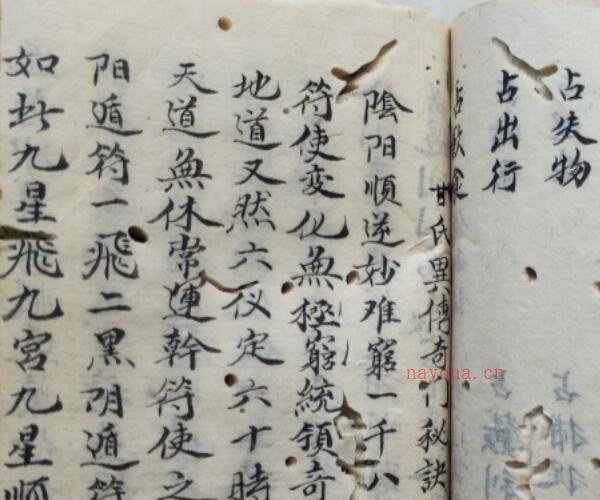 占失物
占出行
甘氏異傳奇门秘訣
陰阳順逆妙难窮一千八
符使变化無極窮統領奇
地道又然六仪定六十時
天道無休常運幹符使之
阳遁符一飛二黑阴遁符
如此九星飛九宮九星順
nayona.cn